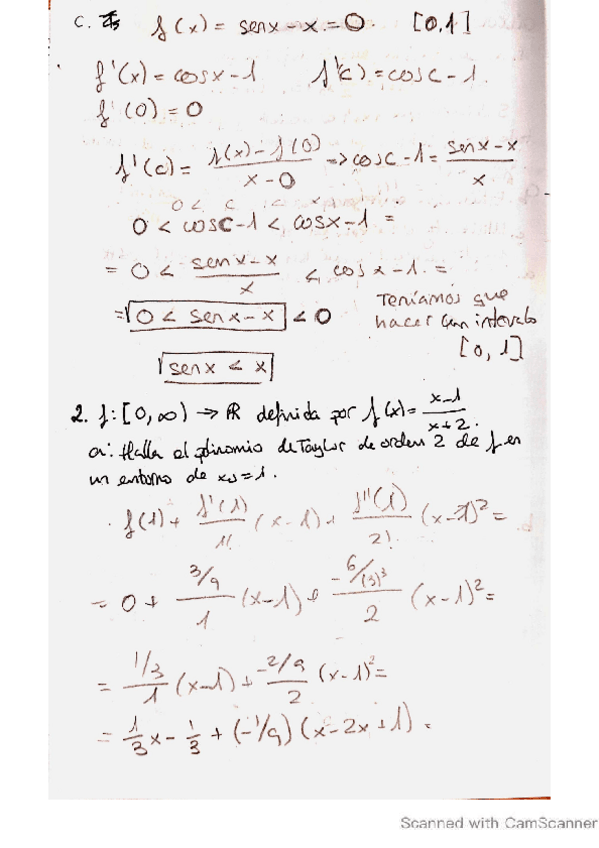 c. f(x) = senx - x = 0 [0,1]
f'(x) = cosx - 1 f'(c) = cosc - 1.
f'(0) = 0
f'(c) = f(x) - f(0) / x - 0 => cosc - 1 = senx - x / x
0 < c < x
0 < cosc - 1 < cosx - 1 =
= 0 < senx - x / x < cosx - 1. =
= 0 < senx - x < 0
Teníamos que
hacer un intervalo
[0, 1]
senx < x
2. f: [0, ∞) → ℝ definida por f(x) = x-1 / x+2.
a: Halla el polinomio de Taylor de orden 2 de f en
un entorno de x₀ = 1.
f(1) + f'(1)/1! (x-1) + f''(1)/2! (x-1)² =
= 0 + 3/9 / 1 (x-1) + -6/(3)³ / 2 (x-1)² =
= 1/3 / 1 (x-1) + -2/9 / 2 (x-1)² =
= 1/3 x - 1/3 + (-1/9) (x - 2x + 1).
Scanned with CamScanner